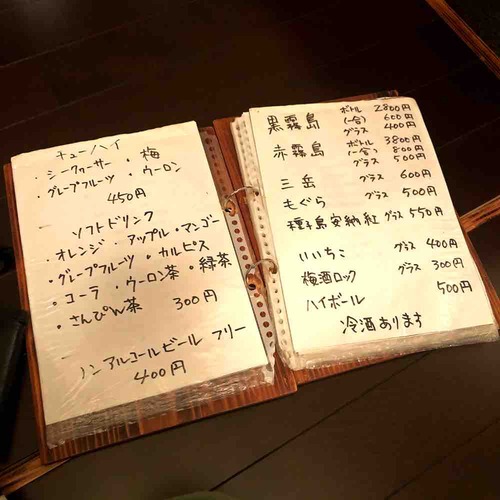 チューハイ
・シークヮーサー ・ 梅
・グレープフルーツ ・ ウーロン
450円
ソフトドリンク
・オレンジ ・アップル ・マンゴー
・グレープフルーツ ・カルピス
・コーラ ・ウーロン茶 ・緑茶
・さんぴん茶 300円
ノンアルコールビール フリー
400円
黒霧島 ボトル 2800円
(一合) 600円
グラス 400円
赤霧島 ボトル 3800円
(一合) 800円
グラス 500円
三岳 グラス 600円
もぐら グラス 500円
種子島安納紅 グラス 550円
いいちこ グラス 400円
梅酒ロック グラス 300円
ハイボール 500円
冷酒あります